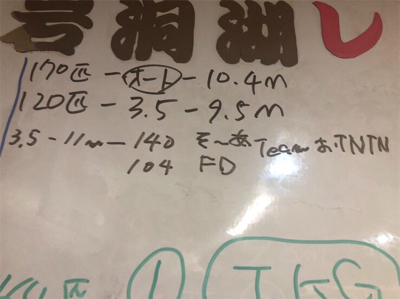 洞湖し
170匹 - オート - 10.4m
120匹 - 3.5 - 9.5m
3.5 - 11m - 140 そ〜あ Team お.TNTN
104 FD
匹 ① TKG